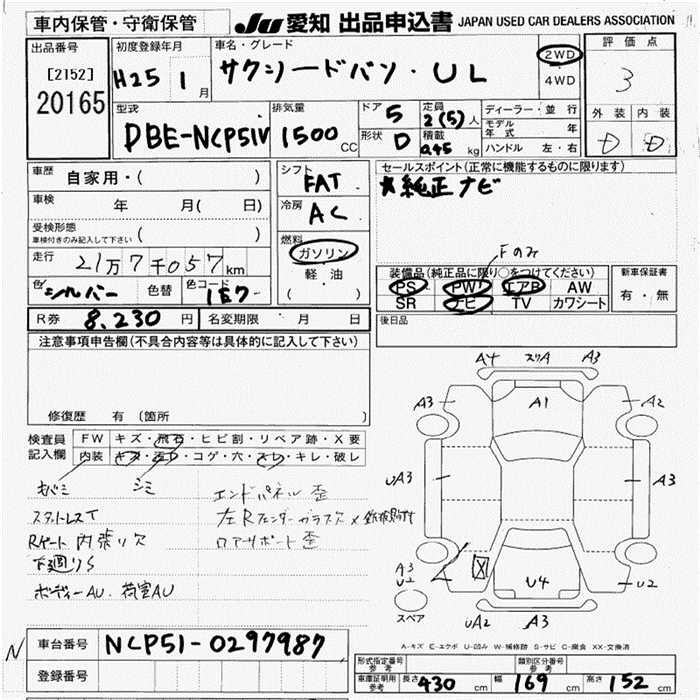 車内保管・守衛保管 JU 愛知 出品申込書 JAPAN USED CAR DEALERS ASSOCIATION
出品番号 初度登録年月 車名・グレード 評価点
[2152] H25 1月 サクシードバン・UL 2WD 4WD 3
20165
型式 排気量 ドア 5 定員 2(5)人 ディーラー・並行 外装 内装
DBE-NCP51V 1500cc 形状 D 積載 0.45kg モデル年式 年 D D
ハンドル 左・右
車歴 自家用・( ) シフト FAT セールスポイント(正常に機能するものに限ります)
車検 年 月( 日) 冷房 AC ★純正ナビ
受検形態 車検付きのみ記入して下さい ( )
走行 21万7千057km 燃料 ガソリン 軽油 ( ) Fのみ
装備品(純正品に限り○をつけてください) 新車保証書
色 シルバー 色替 色コード 1E7 PS PW エアB AW 有・無
SR ナビ TV カワシート
R券 8,230円 名変期限 月 日 後日品
注意事項申告欄(不具合内容等は具体的に記入して下さい)
修復歴 有(箇所
A4 スリA A3
A3 A1 A2
UA3 A3
A3 U2 X U4 U2
スペア UA2 A3
検査員記入欄 FW キズ・飛石・ヒビ割・リペア跡・X要
内装 キズ・コゲ・穴・スレ・キレ・破レ
シミ エンドパネル歪
スタットレスT 左Rフェンダーガラス欠
Rゲート内張り欠 ロアサポート歪
下廻りS
ボディーAU.荷室AU
A-キズ E-エクボ U-凹み W-補修跡 S-サビ C-腐食 XX-交換済
N 車台番号 NCP51-0297987
登録番号
形式指定番号 参考 類別区分番号 参考
車庫証明用 参考 長さ 430cm 幅 169cm 高さ 152cm